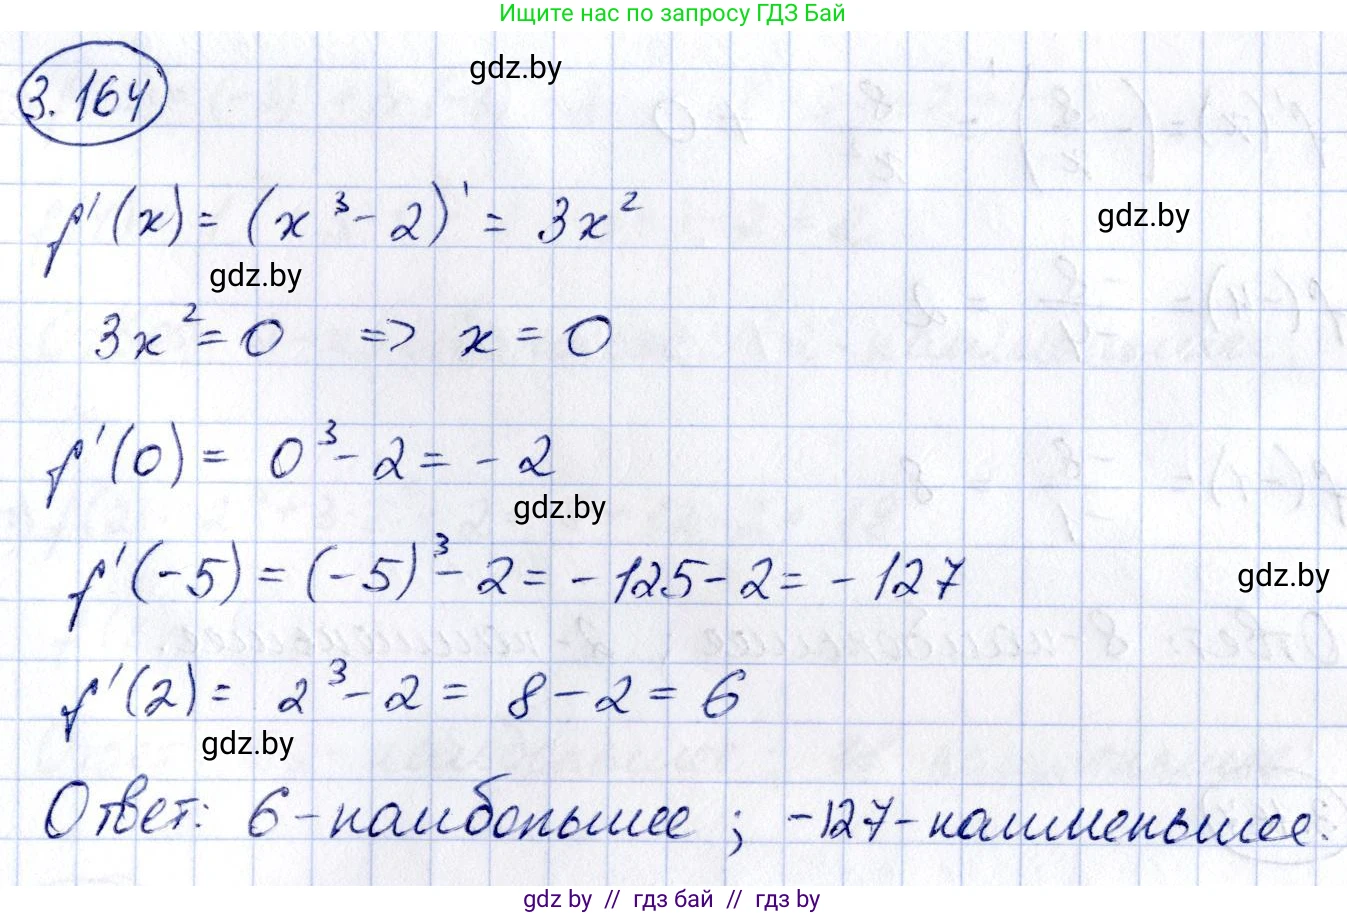 Ищите нас по запросу ГДЗ Бай
3.164
gdz.by
f'(x) = (x³ - 2)' = 3x²
gdz.by
gdz.by
3x² = 0 => x = 0
f'(0) = 0³ - 2 = - 2
gdz.by
f'(-5) = (-5)³ - 2 = - 125 - 2 = - 127
gdz.by
f'(2) = 2³ - 2 = 8 - 2 = 6
gdz.by
Ответ: 6 - наибольшее ; -127 - наименьшее.
gdz.by // гдз бай // гдз by